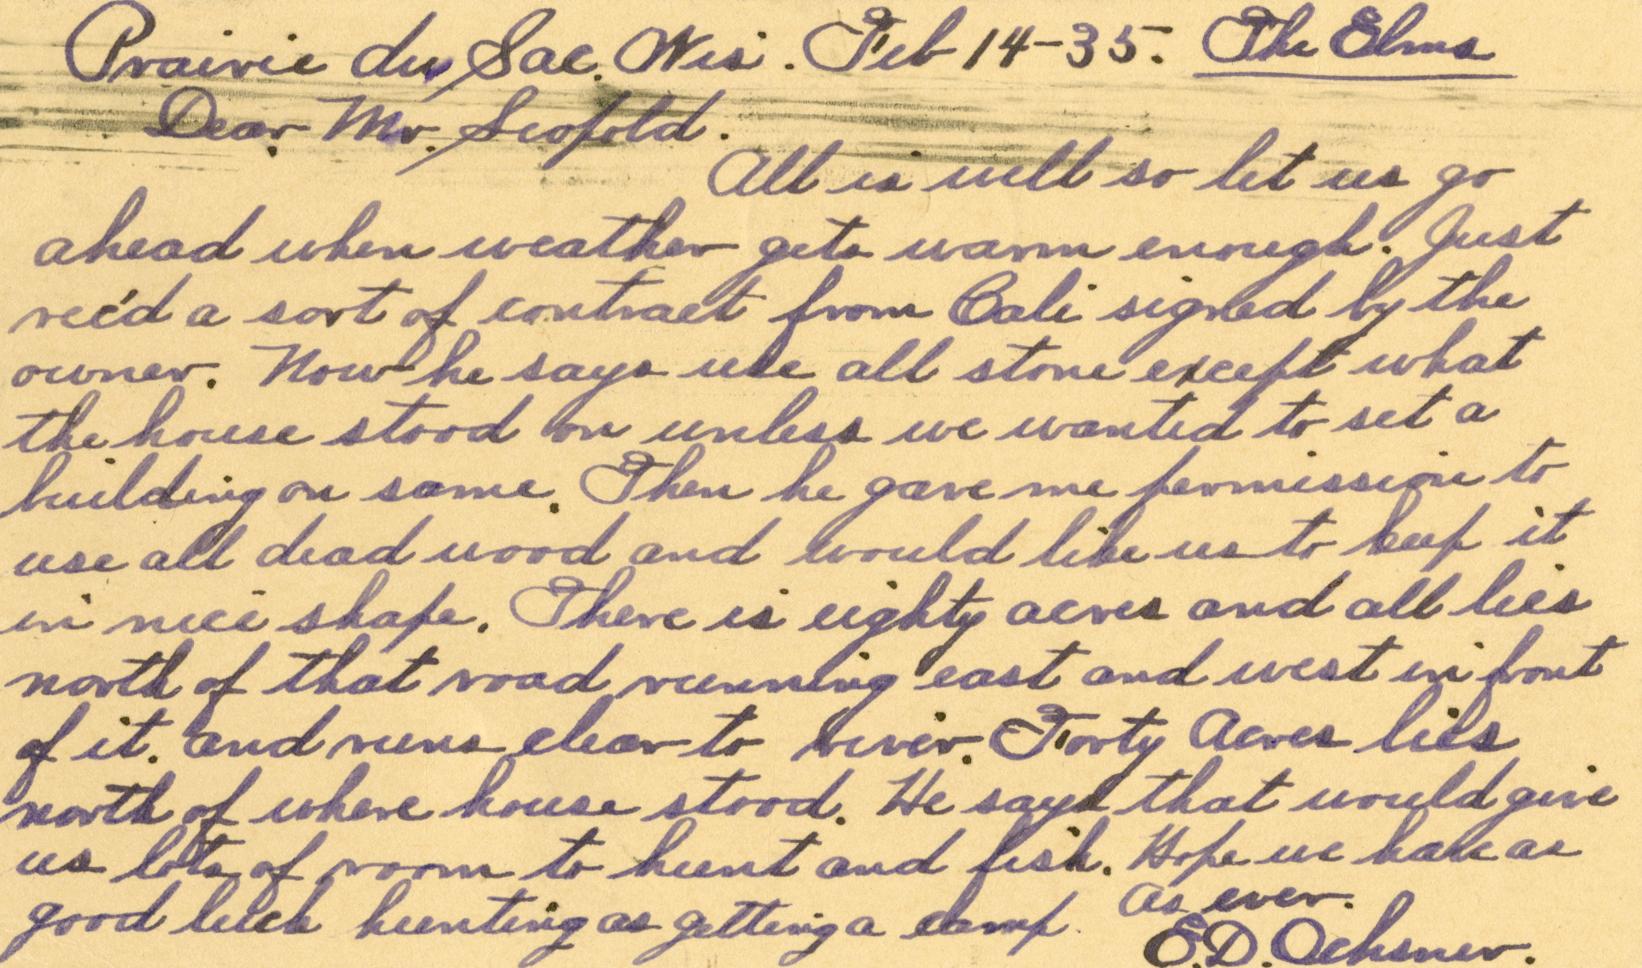 Prairie du Sac. Wis. Feb 14-35. The Elms
Dear Mr. Leopold.
All is well so let us go
ahead when weather gets warm enough. Just
rec'd a sort of contract from Cali signed by the
owner. Now he says use all stone except what
the house stood on unless we wanted to set a
building on same. Then he gave me permission to
use all dead wood and would like us to keep it
in nice shape. There is eighty acres and all lies
north of that road running east and west in front
of it. and runs clear to river. Forty Acres lies
north of where house stood. He says that would give
us lots of room to hunt and fish. Hope we have as
good luck hunting as getting a camp.
As ever.
E.D. Ochsner.